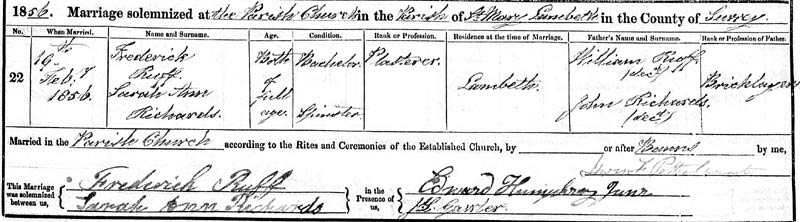 1856. Marriage solemnized at the Parish Church in the Parish of St Mary Lambeth in the County of Surrey
No. When Married. Name and Surname. Age. Condition. Rank or Profession. Residence at the time of Marriage. Father's Name and Surname. Rank or Profession of Father.
22
19th Feby 1856.
Frederick Ruff
Sarah Ann Richards.
Both of full age.
Bachelor
Spinster
Plasterer.
Lambeth.
William Ruff (decd)
John Richards. (decd)
Bricklayer
Married in the Parish Church according to the Rites and Ceremonies of the Established Church, by or after Banns by me,
This Marriage was solemnized between us,
Frederick Ruff
Sarah Ann Richards
in the Presence of us,
Edward Humphrey Junr
Gawler.